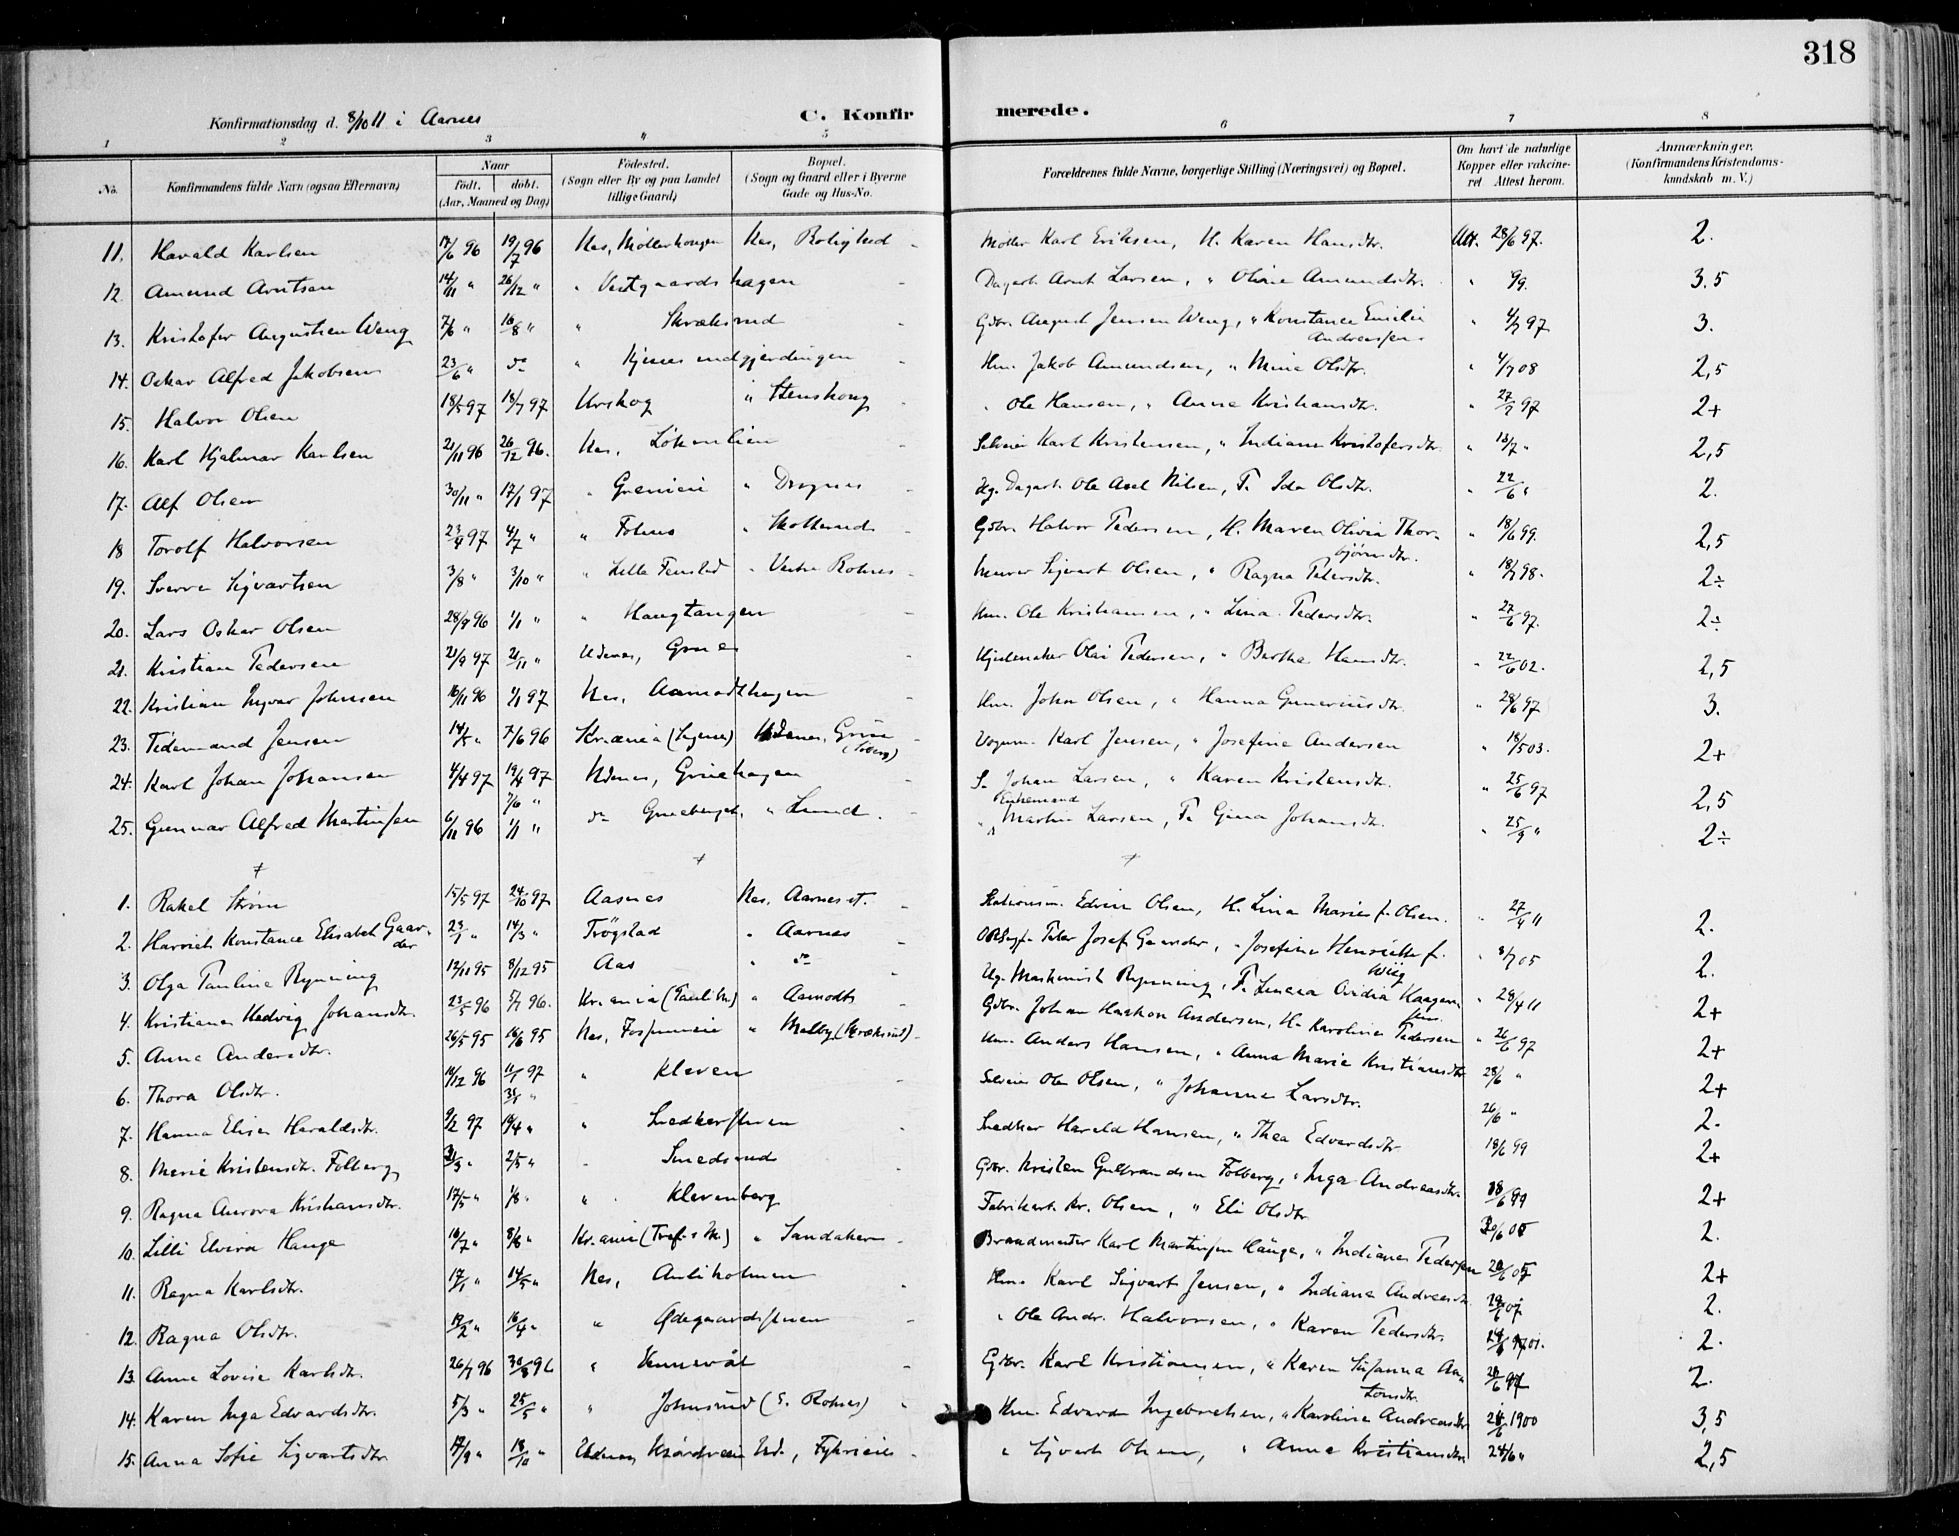 318
Konfirmationsdag d. 8/10 11 i Aarnes
C. Konfirmerede.
1 2 3 " 5 6 7 8
No. Konfirmandens fulde Navn (ogsaa Efternavn) Naar født. døbt. (Aar, Maaned og Dag) Fødested. (Sogn eller By og paa Landet tillige Gaard) Bopæl. (Sogn og Gaard eller i Byerne Gade og Hus-No. Forældrenes fulde Navne, borgerlige Stilling (Næringsvei) og Bopæl. Om havt de naturlige Kopper eller vakcineret Attest herom. Anmærkninger. (Konfirmandens Kristendomskundskab m. V.)
11. Harald Karlsen 17/6 96 19/7 96 Nes, Møllerhaugen Nes, Rolighed Møller Karl Eriksen, H. Karen Hansdtr. Att. 28/6 97. 2.
12. Amund Arntsen 14/11 " 26/12 " " Vestgaardshagen Dagarb. Arnt Larsen, " Oline Amundsdtr. " 3.5
13. Kristofer Augustsen Weng 7/6 " 16/8 " " Skræksrud Gbr. August Jensen Weng, " Konstance Emilie Andreasen " 4/7 97 3.
14. Oskar Alfred Jakobsen 23/6 " do " Kjenes indgjerdingen Hm. Jakob Amundsen, " Mina Olsdtr. " 4/7 08 2,5
15. Halvor Olsen 18/5 97 18/7 97 Urskog " Stenshong " Ole Hansen, " Anne Kristiansdtr. " 27/7 97 2+
16. Karl Hjalmar Karlsen 21/11 96 26/12 96. Nes, Løkenlien Selveier Karl Kristensen, " Indiane Kristofersdtr. " 13/7 " 2,5
17. Alf Olsen 30/11 " 17/1 97 " Grenieie " Dragnes Ug. Dagarb. Ole Axel Nilsen, F. Ida Olsdtr. " 22/6 " 2.
18 Torolf Halvorsen 23/4 97 4/7 " " Folnes " Skotterud Gbr. Halvor Pedersen, H. Maren Olivia Thorbjørnsdtr. " 18/6 99. 2,5
19. Sverre Sigvartsen 3/8 " 3/10 " " Lille Fenstad " Vestre Rohnes Murer Sigvart Olsen, " Ragna Petersdtr. " 18/7 98. 2÷
20. Lars Oskar Olsen 28/9 96 1/1 " " Haugtangen Hm. Ole Kristiansen, " Lina Pedersdtr. " 27/6 97. 2÷
21. Kristian Pedersen 21/9 97 21/11 " Udenes, Grues Hjulmaker Olai Pedersen, " Bertha Hansdtr. " 22/6 02. 2,5
22. Kristian Ingvar Johnsen 16/11 96 1/1 97 Nes, Aamodthagen Hm. John Olsen, " Hanna Gunneriusdtr. " 28/6 97 3.
23. Tidemand Jensen 14/5 " 7/6 96 Kr.ania Udenes, Grue (Soberg) Vognm. Karl Jensen, " Josefine Andersen " 18/5 03. 2+
24. Karl Johan Johansen 4/4 97 19/4 97 Udenes, Gruehagen S. Johan Larsen, " Karen Kristensdtr. " 25/6 97 2,5
7/6 "
25. Gunnar Alfred Martinsen 6/11 96 1/1 " do Grueberget, " Lund. Enkemand Martin Larsen, F. Gina Johansdtr. " 25/9 " 2÷
+ + +
1. Rakel Strøm 15/5 97 24/10 97 Aasnes Nes, Aarnes st. Stationsm. Edvin Olsen, H. Lina Marie f. Olsen. " 27/4 11 2.
2. Harriet Konstance Elisabet Gaarder 23/1 " 14/3 " Trøgstad " Aarnes Peter Josef Gaarder, " Josefine Henriette f. Wiig " 8/7 05 2.
3. Olga Pauline Rynning 12/11 95 8/12 95 Aas " do Ug. Maskinist Rynning, F. Linea Ovidia Haagensen. " 28/4 11 2+
4. Kristiane Hedvig Johansdtr. 23/5 96 5/7 96. Kr.ania (Pauli M.) " Aamodt Gbr. Johan Haakon Andersen, H. Karoline Pedersen " 26/6 97 2+
5. Anna Andersdtr. 26/5 95 16/6 95 Nes, Fosseneie " Melby (Skræksrud) Hm. Anders Hansen, " Anna Marie Kristiansdtr. 28/6 " 2+
6. Thora Olsdtr. 10/12 96 11/1 97 " Kleven Selveier Ole Olsen, " Johanne Larsdtr. 26/6 " 2.
31/1 "
7. Hanna Elise Haraldsdtr. 9/2 97 19/4 " " Snedkerstuen Snedker Harald Hansen, " Thea Edvardsdtr. 18/6 99 2+
8. Marie Kristensdtr. Folberg 31/3 " 2/5 " " Smedsrud Gbr. Kristen Gulbrandsen Folberg, " Inga Andreasdtr. 18/6 99 2+
9. Ragna Aurora Kristiansdtr. 17/5 " 1/8 " " Klevenberg Fabrikarb. Kr. Olsen, " Eli Olsdtr. 20/6 05 2.
10. Lilli Elvira Hauge 16/7 " 8/6 " Kr.ania " Sandaker Brandmester Karl Martinsen Hauge, " Indiane Pedersen 2+
11. Ragna Karlsdtr. 17/1 " 14/5 " Nes, Auliholmen Hm. Karl Sigvart Jensen, " Indiane Andreasdtr. 2.
12. Ragna Olsdtr. 19/2 " 16/4 " " Ødegaardsstuen " Ole Andr. Halvorsen, " Karen Pedersdtr. 2.
13. Anna Lovise Karlsdtr. 26/7 96 30/8 96 " Vennevål Gbr. Karl Kristiansen, " Karen Susanna Antonsdtr. 2.
14. Karen Inga Edvardsdtr. 5/3 " 25/5 " " Johnsrud (S. Rohnes) Hm. Edvard Ingebretsen, " Karoline Andreasdtr. 1900 3,5
15. Anna Sofie Sigvartsdtr. 17/9 " 18/10 " Udenes Ud., Fykrieie " Sigvart Olsen, " Anna Kristiansdtr. 24/6 " 2,5